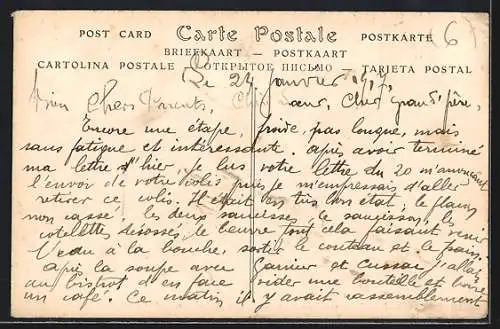 POST CARD Carte Postale POSTKARTE 6
BRIEFKAART — POSTKAART
CARTOLINA POSTALE — ОТКРЫТОЕ ПИСЬМО — TARJETA POSTAL
Le 24 Janvier
Bien Chers Parents, Cher grand' père,
Encore une étape, froide, pas longue, mais
sans fatigue et intéressante. après avoir terminé
ma lettre d'hier, je lus votre lettre du 20 m'annonçant
l'envoi de votre colis puis je m'empressais d'aller
retirer ce colis. Il était en très bon état; le flacon
non cassé, les deux saucisses, le saucisson, les
cotelettes désossés, le beurre tout cela faisant venir
l'eau à la bouche, sortir le couteau et le pain.
après la soupe avec Garnier et Cussac j'allais
au bistrot d'en face vider une bouteille et boire
un café. Ce matin il y avait rassemblement